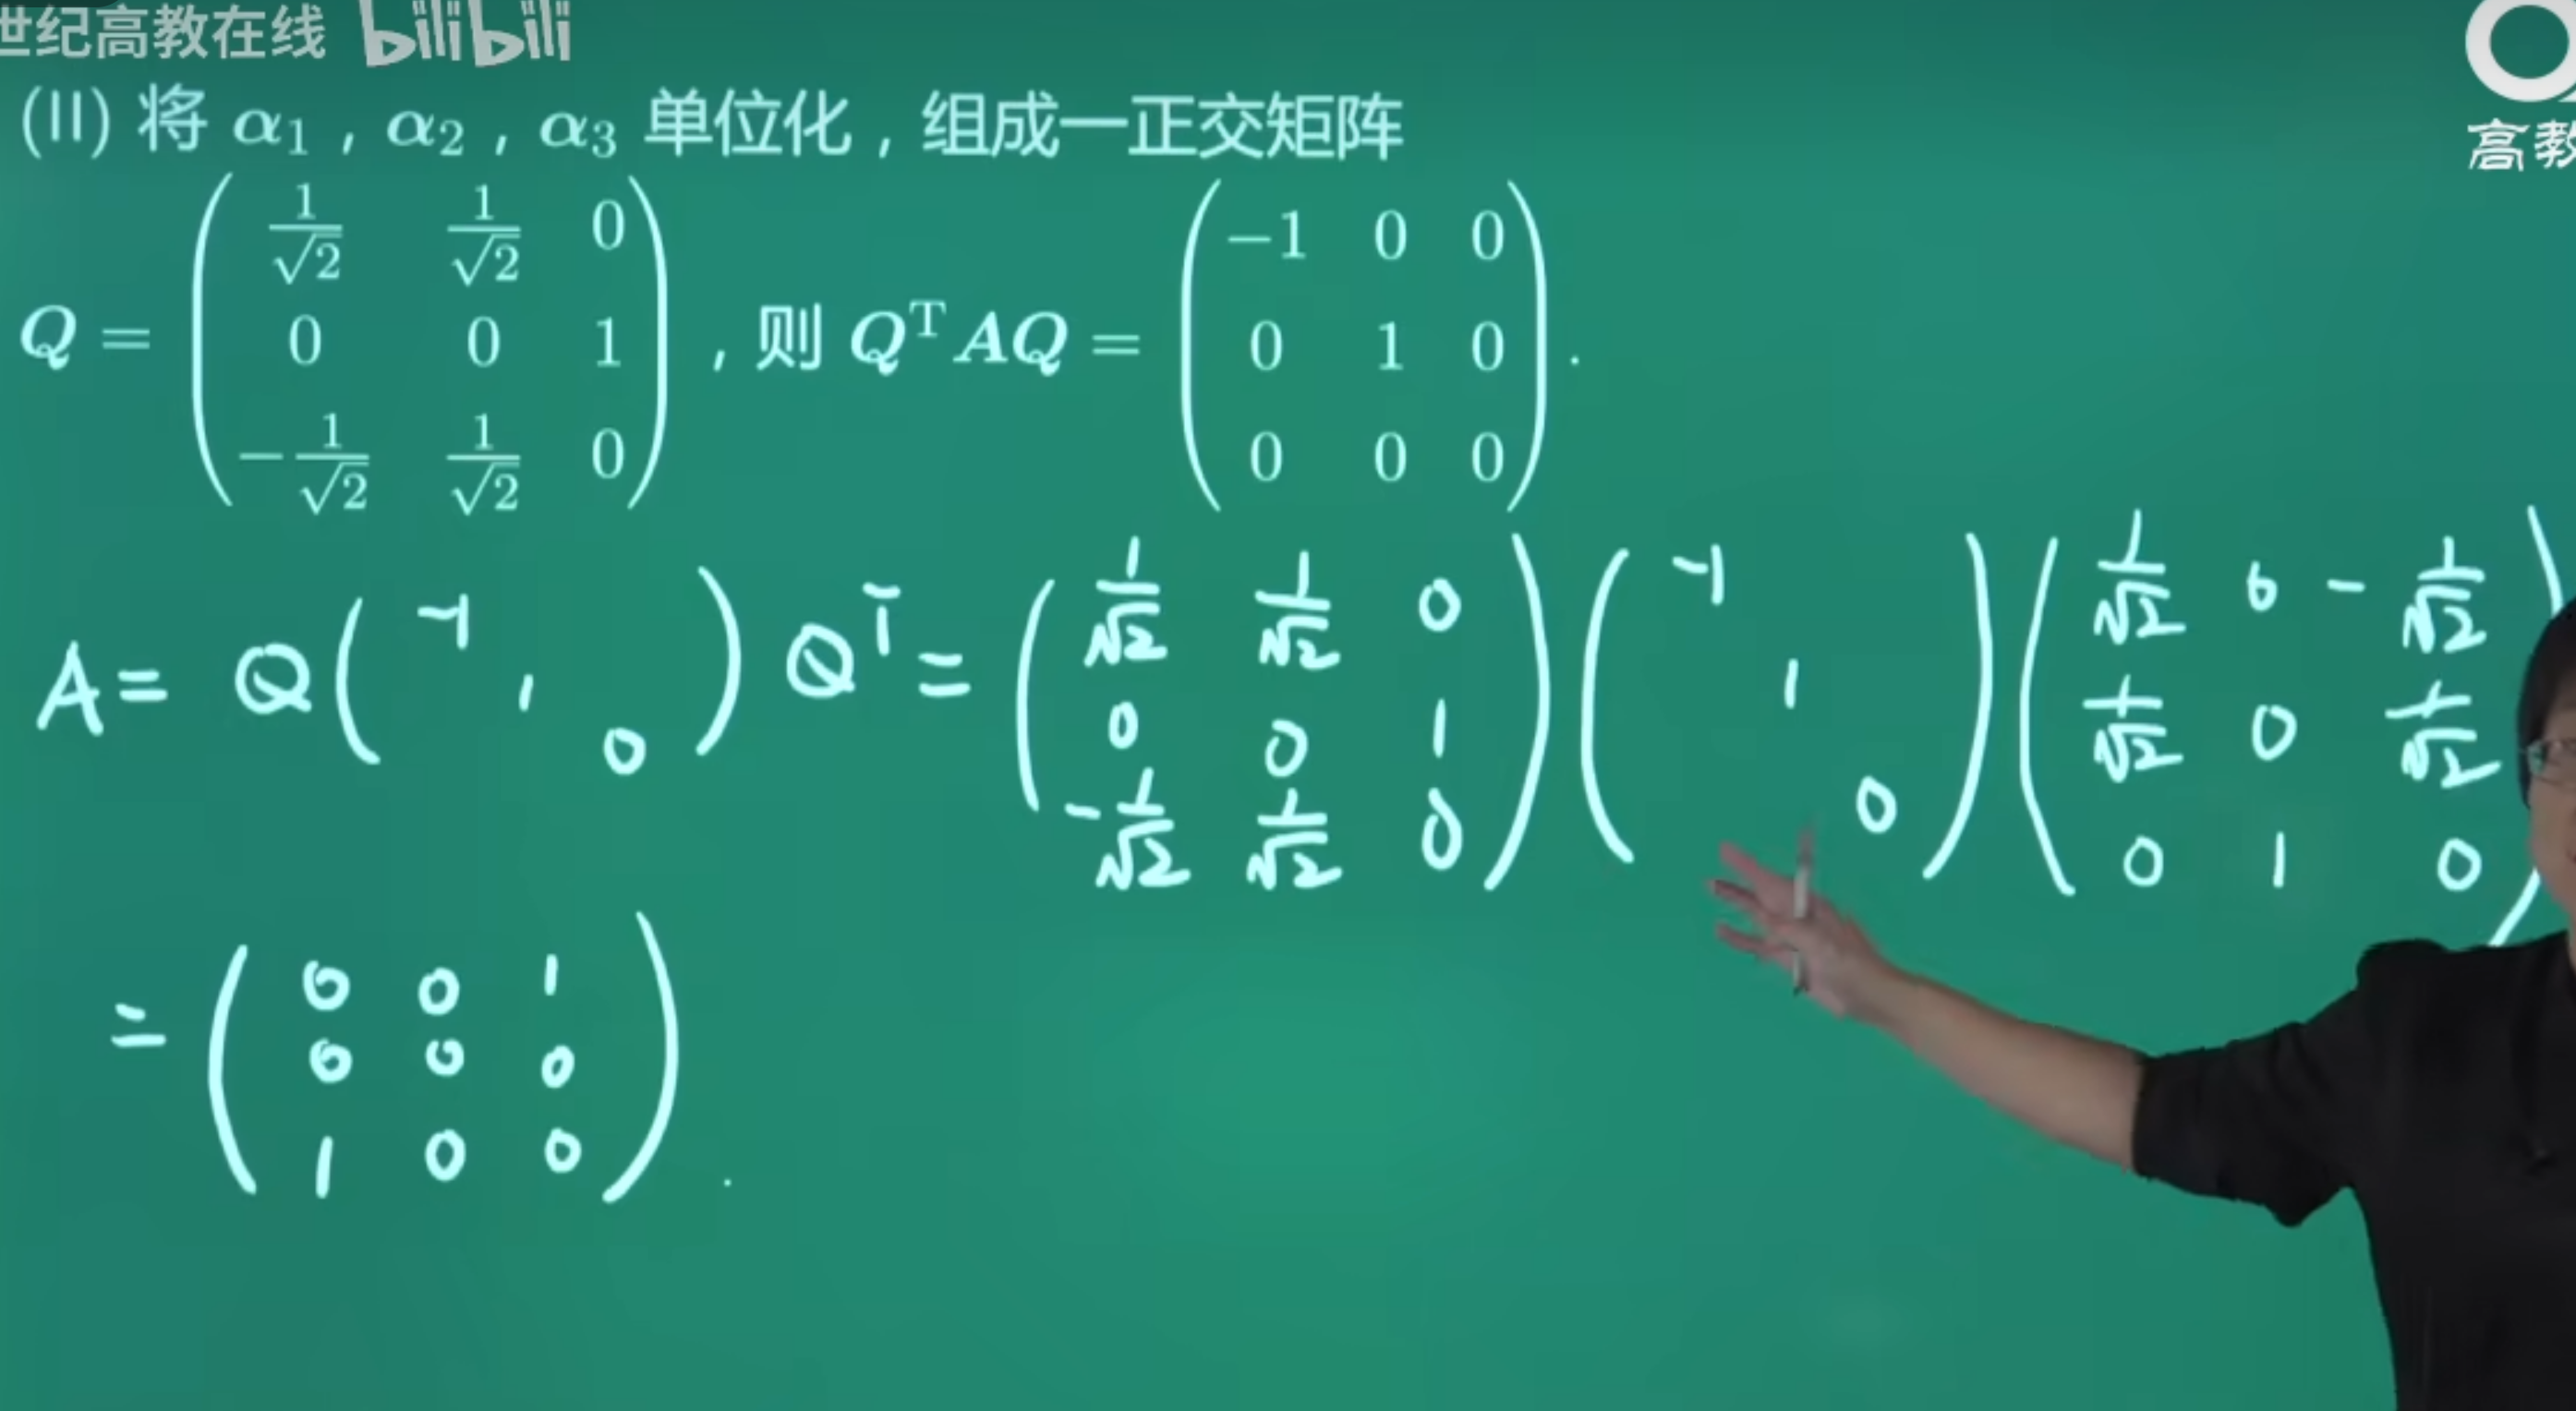 世纪高教在线 bilibili
高教
(II) 将 α₁ , α₂ , α₃ 单位化 , 组成一正交矩阵
Q = ( 1/√2 1/√2 0 ; 0 0 1 ; −1/√2 1/√2 0 ) , 则 QᵀAQ = ( −1 0 0 ; 0 1 0 ; 0 0 0 ) .
A = Q ( −1 1 0 ) Qᵀ = ( 1/√2 1/√2 0 ; 0 0 1 ; −1/√2 1/√2 0 ) ( −1 1 0 ) ( 1/√2 0 −1/√2 ; 1/√2 0 1/√2 ; 0 1 0 )
= ( 0 0 1 ; 0 0 0 ; 1 0 0 ) .